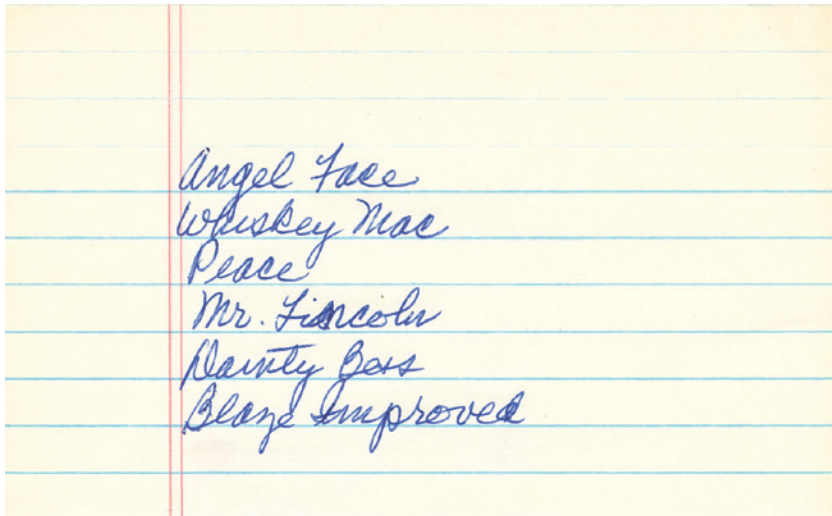 Angel Face
Whiskey Mac
Peace
Mr. Lincoln
Dainty Bess
Blaze Improved